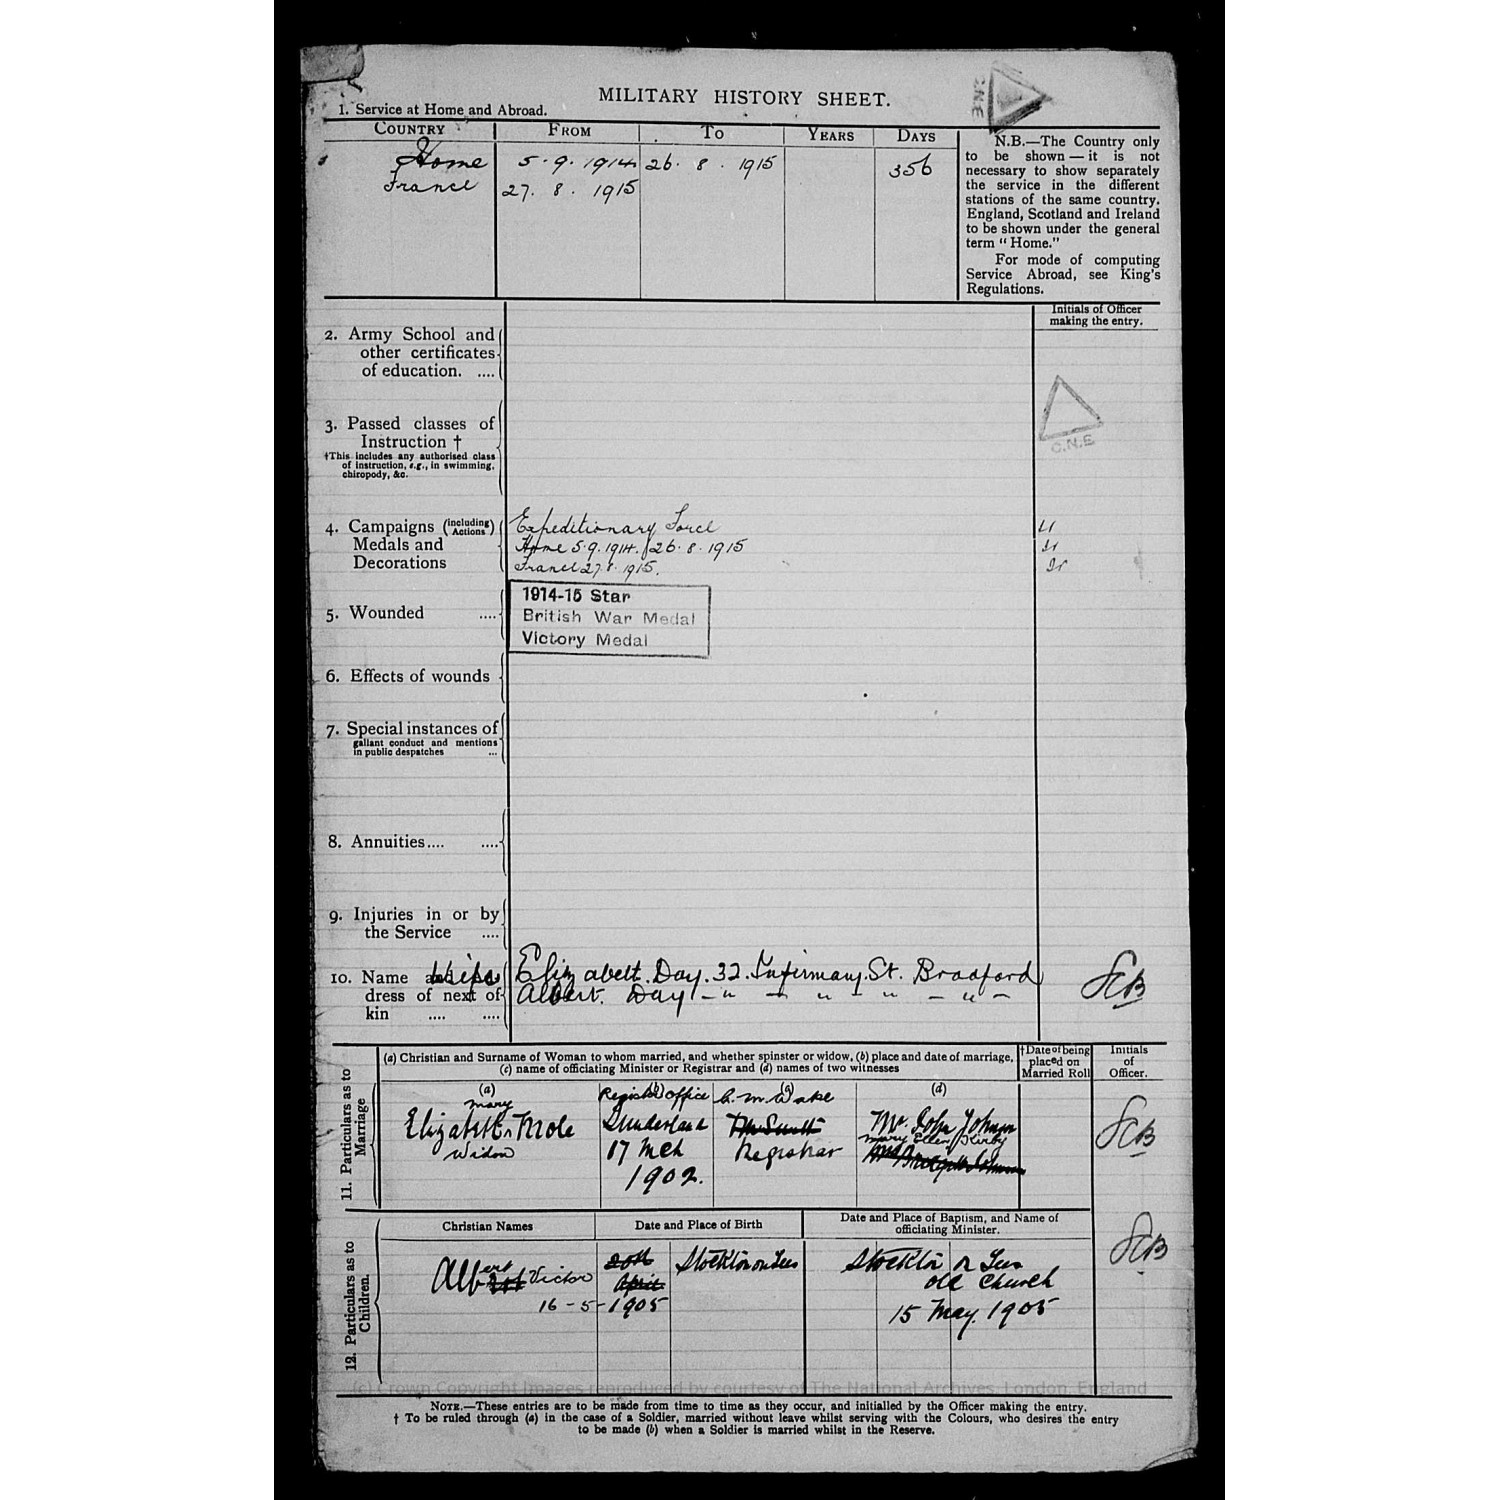 MILITARY HISTORY SHEET.
C.N.E
1. Service at Home and Abroad.
COUNTRY FROM TO YEARS DAYS
Home 5.9.1914 26.8.1915 356
France 27.8.1915
N.B.—The Country only
to be shown—it is not
necessary to show separately
the service in the different
stations of the same country.
England, Scotland and Ireland
to be shown under the general
term "Home."
For mode of computing
Service Abroad, see King's
Regulations.
Initials of Officer
making the entry.
2. Army School and
other certificates
of education. ....
3. Passed classes of
Instruction †
†This includes any authorised class
of instruction, e.g., in swimming,
chiropody, &c.
C.N.E
4. Campaigns (including Actions)
Medals and
Decorations
Expeditionary Force
Home 5.9.1914. 26.8.1915
France 27.8.1915.
5. Wounded ....
1914-15 Star
British War Medal
Victory Medal
6. Effects of wounds
7. Special instances of
gallant conduct and mentions
in public despatches ...
8. Annuities.... ....
9. Injuries in or by
the Service ....
10. Name and ad-
dress of next of
kin .... ....
Wife Elizabeth Day. 32. Infirmary. St. Bradford
Albert. Day - " - " - " - " -
11. Particulars as to
Marriage
(a) Christian and Surname of Woman to whom married, and whether spinster or widow, (b) place and date of marriage,
(c) name of officiating Minister or Registrar and (d) names of two witnesses
†Date of being
placed on
Married Roll
Initials
of
Officer.
(a) (b) (c) (d)
mary Register office C. M. Wake
Elizabeth Mole Sunderland Mr John Johnson
Widow 17 Mch Registrar Mary Ellen Kirby
1902.
12. Particulars as to
Children.
Christian Names Date and Place of Birth Date and Place of Baptism, and Name of
officiating Minister.
Albert Victor 20th April Stockton on Tees Stockton on Tees
old Church
16-5-1905 15 May. 1905
(c) Crown Copyright Images reproduced by courtesy of The National Archives, London, England
NOTE.—These entries are to be made from time to time as they occur, and initialled by the Officer making the entry.
† To be ruled through (a) in the case of a Soldier, married without leave whilst serving with the Colours, who desires the entry
to be made (b) when a Soldier is married whilst in the Reserve.